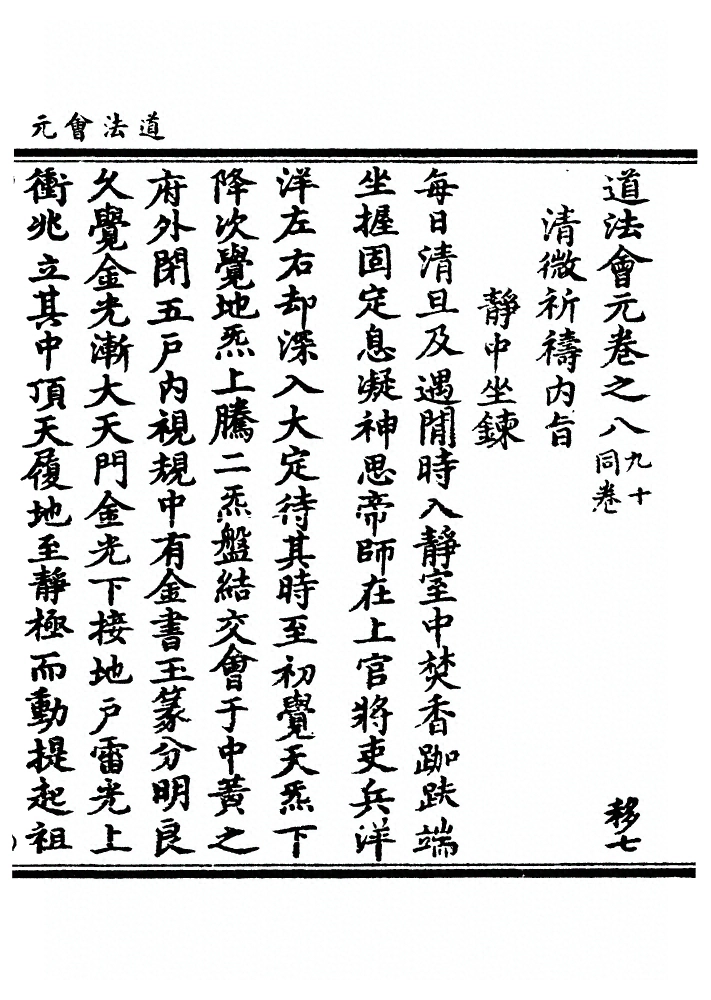 道法會元
道法會元卷之八 九十同卷 移七
清微祈禱內旨
靜中坐鍊
每日清旦及遇閒時入靜室中焚香跏趺端
坐握固定息凝神思帝師在上官將吏兵洋
洋左右却深入大定待其時至初覺天炁下
降次覺地炁上騰二炁盤結交會于中黃之
府外閉五戶內視規中有金書玉篆分明良
久覺金光漸大天門金光下接地戶雷光上
衝兆立其中頂天履地至靜極而動提起祖